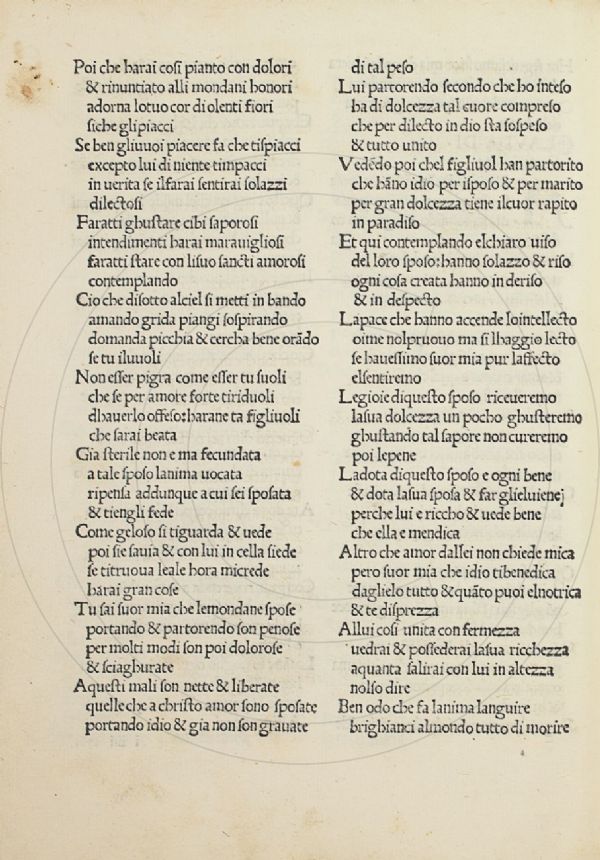 Poi che harai cosi pianto con dolori
& rinuntiato alli mondani honori
adorna lo tuo cor di olenti fiori
siche gli piacci
Se ben gli uuoi piacere fa che ti spiacci
excepto lui di niente timpacci
in uerita se il farai sentirai solazzi
dilectosi
Faratti ghustare cibi saporosi
intendimenti harai marauigliosi
faratti stare con li suo sancti amorosi
contemplando
Cio che disotto al ciel si metti in bando
amando grida piangi sospirando
domanda picchia & cercha bene orādo
se tu il uuoli
Non esser pigra come esser tu suoli
che se per amore forte ti riduoli
dhauerlo offeso:harane ta figliuoli
che sarai beata
Gia sterile non e ma fecundata
a tale sposo lanima uocata
ripensa addunque a cui sei sposata
& tiengli fede
Come geloso si ti guarda & uede
poi sie sauia & con lui in cella siede
se ti truoua leale hora mi crede
harai gran cose
Tu sai suor mia che le mondane spose
portando & partorendo son penose
per molti modi son poi dolorose
& sciaghurate
A questi mali son nette & liberate
quelle che a christo amor sono sposate
portando idio & gia non son grauate
di tal peso
Lui partorendo secondo che ho inteso
ha di dolcezza tal cuore compreso
che per dilecto in dio sta sospeso
& tutto unito
Vedēdo poi chel figliuol han partorito
che hāno idio per isposo & per marito
per gran dolcezza tiene il cuor rapito
in paradiso
Et qui contemplando el chiaro uiso
del loro sposo:hanno solazzo & riso
ogni cosa creata hanno in deriso
& in despecto
La pace che hanno accende lo intellecto
oime nol pruouo ma si lhaggio lecto
se hauessimo suor mia pur laffecto
el sentiremo
Le gioie di questo sposo riceueremo
la sua dolcezza un pocho ghusteremo
ghustando tal sapore non cureremo
poi le pene
La dota di questo sposo e ogni bene
& dota la sua sposa & far gliel uiene
perche lui e riccho & uede bene
che ella e mendica
Altro che amor dallei non chiede mica
pero suor mia che idio ti benedica
daglielo tutto & quāto puoi el notrica
& te disprezza
Allui cosi unita con fermezza
uedrai & possederai la sua ricchezza
a quanta salirai con lui in altezza
nol so dire
Ben odo che fa lanima languire
brighianci al mondo tutto di morire